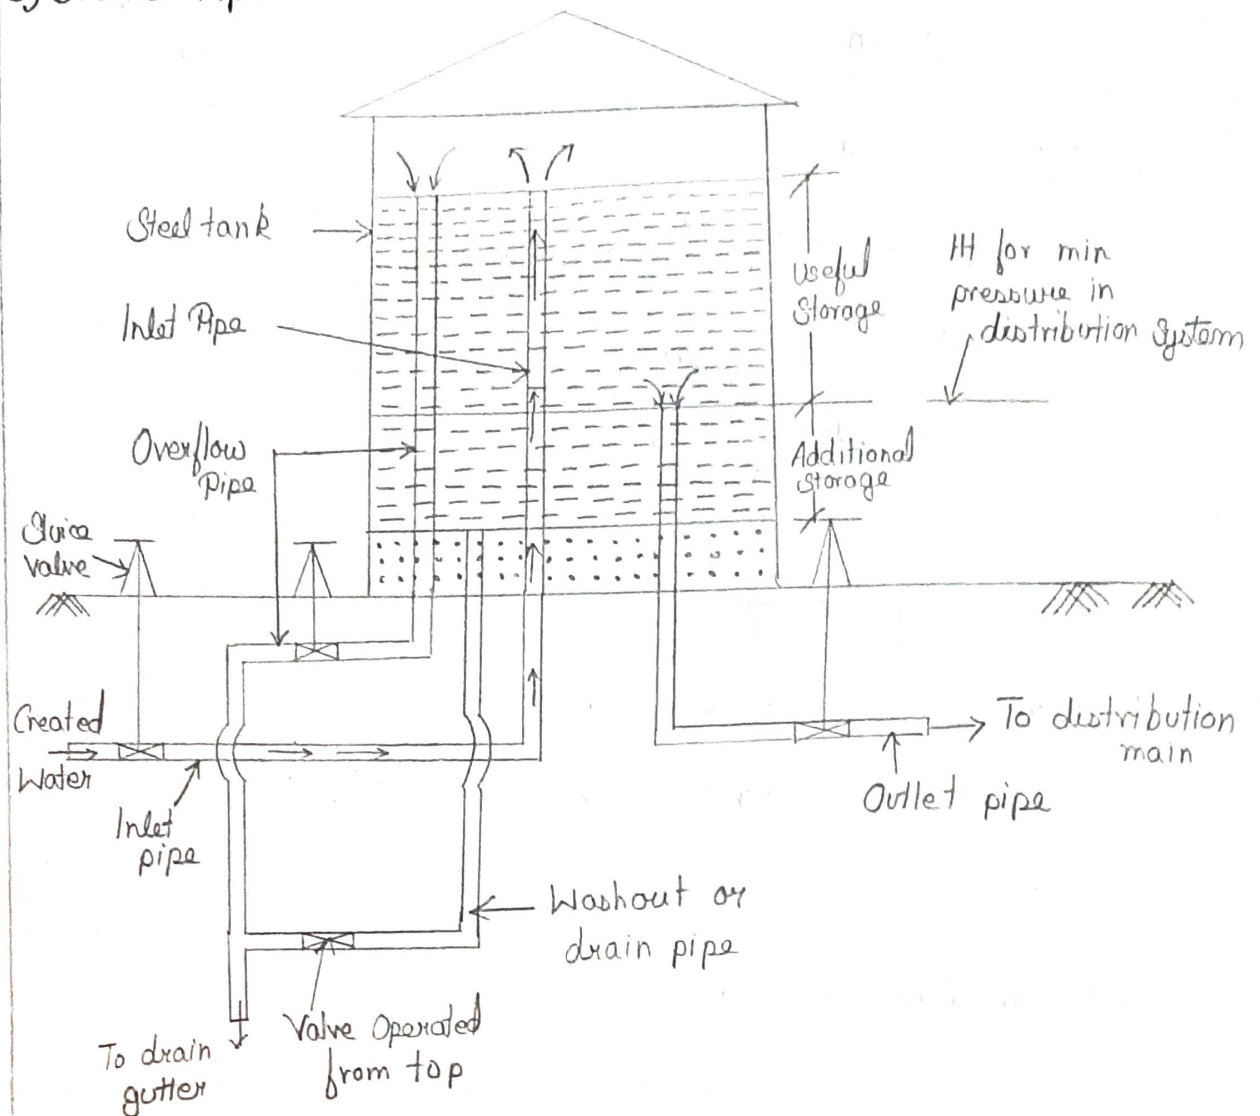 Steel tank
Inlet Pipe
Overflow
Pipe
Sluice
valve
Useful
Storage
Additional
storage
H for min
pressure in
distribution System
Created
Water
Inlet
pipe
To distribution
main
Outlet pipe
Washout or
drain pipe
Valve Operated
from top
To drain
gutter